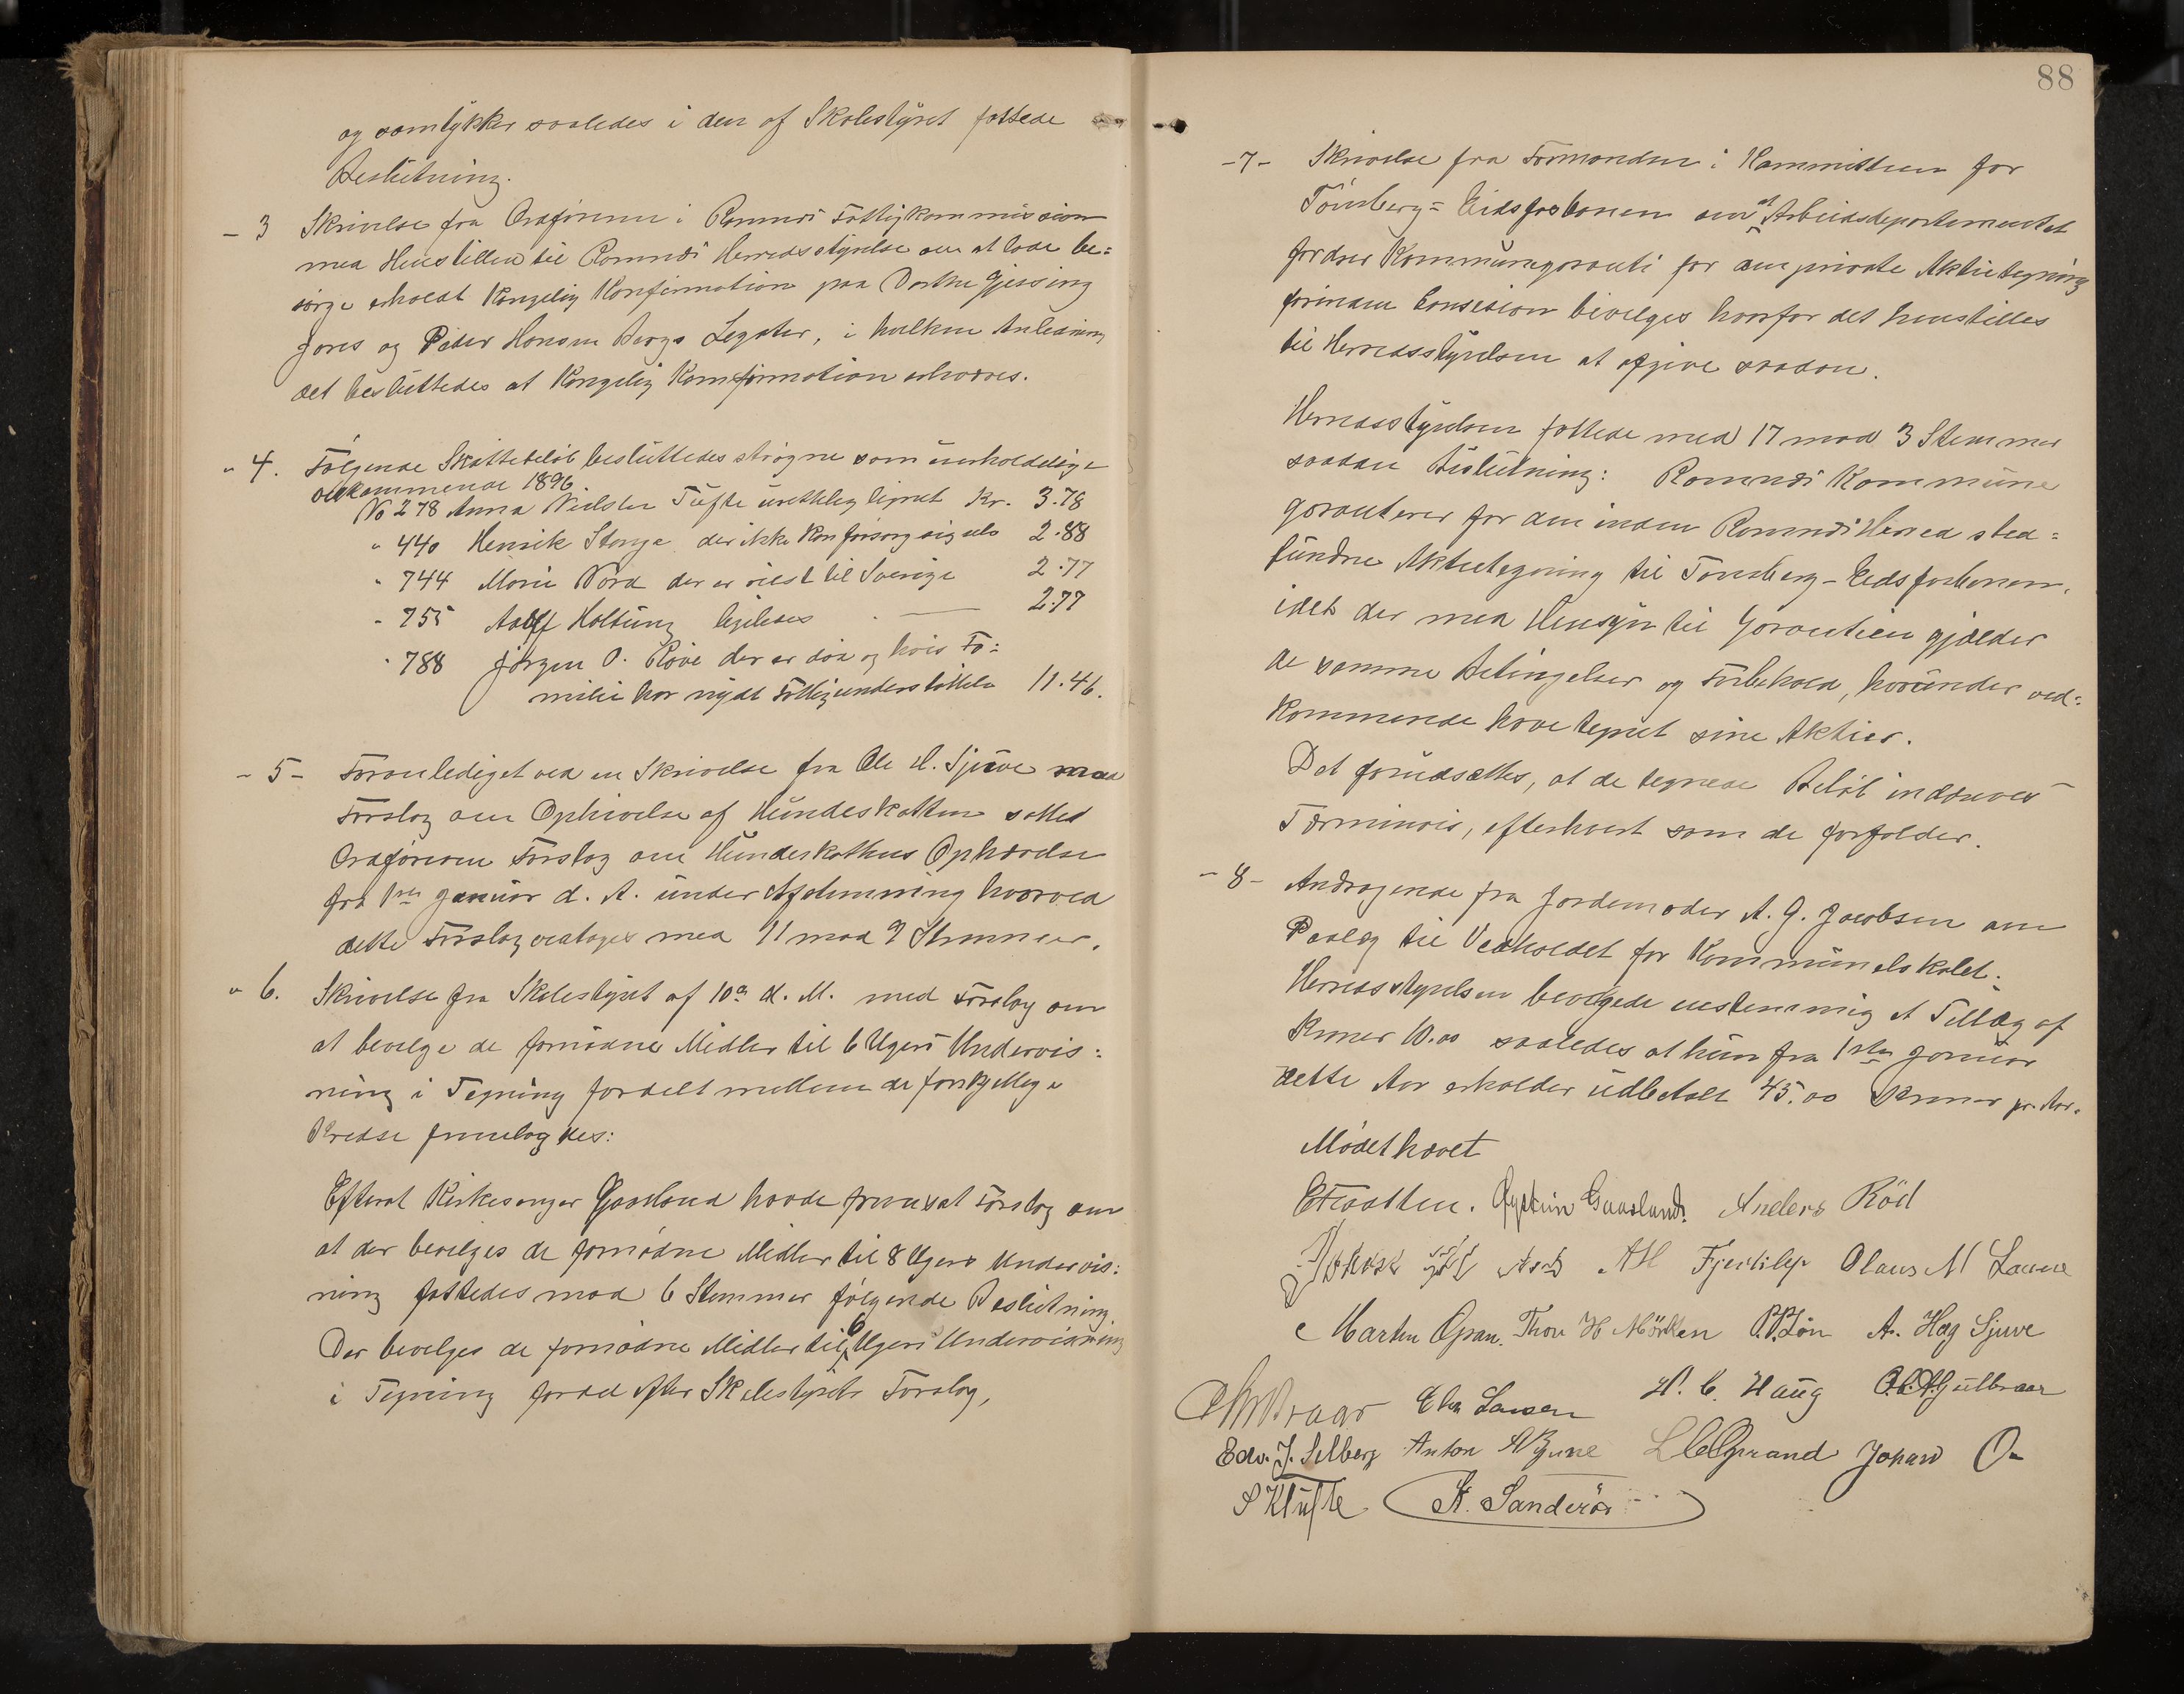 og samtykker saaledes i den af Skolestyret fattede
Beslutning.
- 3 Skrivelse fra Ordføreren i Ramnæs Fattigkommission
med Henstillen til Ramnæs Herredsstyrelse om at lade be=
sørge erholdt Kongelig Konfirmation paa Dorthe Gjessing
Jores og Peder Hansen Bergs Legater, i hvilken Anledning
det besluttedes at Kongelig Konfirmation erhverves.
" 4. Følgende Skattebeløb besluttedes strøgne som uerholdelige
vedkommende 1896
No 278 Anna Nielsen Tufte urettelig lignet Kr. 3.78
" 440 Henrik Stenge der ikke kan forsørge sig selv 2.88
" 744 Marie Nord der er reist til Sverige 2.77
" 755 Adolf Holtung ligeledes " — 2.77
" 788 Jørgen O. Røve der er død og hvis Fa=
milie har nydt Fattigunderstøttelse 11.46.
- 5 - Foranlediget ved en Skrivelse fra Ole H. Sjuve med
Forslag om Ophævelse af Hundeskatten sattes
Ordførerens Forslag om Hundeskattens Ophævelse
fra 1ste Januar d. A. under Afstemning hvorved
dette Forslag vedtoges med 11 mod 9 Stemmer.
" 6. Skrivelse fra Skolestyret af 10de d. M. med Forslag om
at bevilge de fornødne Midler til 6 Ugers Undervis=
ning i Tegning fordelt mellem de forskjellige
Kredse fremlagdes:
Efterat Kirkesanger Gaasland havde fremsat Forslag om
at der bevilges de fornødne Midler til 8 Ugers Undervis=
ning fattedes mod 6 Stemmer følgende Beslutning.
Der bevilges de fornødne Midler til 6 Ugers Undervisning
i Tegning fordelt efter Skolestyrets Forslag,
88
- 7 - Skrivelse fra Formanden i Kammitteen for
Tønsberg=Eidsfosbanen om at Arbeidsdepartementet
fordrer Kommunegaranti for den private Aktietegning
forinden Consesion bevilges hvorfor det henstilles
til Herredsstyrelsen at afgive saadan.
Herredsstyrelsen fattede med 17 mod 3 Stemmer
saadan Beslutning: Ramnæs Kommune
garanterer for den inden Ramnæs Herred sted=
fundne Aktietegning til Tønsberg-Eidsfosbanen,
idet der med Hensyn til Garantien gjælder
de samme Betingelser og Forbehold, hvorunder ved=
kommende have tegnet sine Aktier.
Det forudsættes, at de tegnede Beløb inddrives
Terminvis, efterhvert som de forfalder.
- 8 - Andragende fra Jordemoder A. G. Jacobsen om
Paalæg til Vedholdet for Kommunelokalet:
Herredsstyrelsen bevilgede enstemmig et Tillæg af
Kroner 10.00 saaledes at hun fra 1ste Januar
dette Aar erholder udbetalt 45.00 Kroner pr. Aar.
Mødet hævet
Øystein Gaasland. Anders Röd
AH Olaus M Laane
Martin Opan. Thor H Mörken A. Hag Sjuve
Chr Larsen H. C. Haug
Edv. J. Selberg Anton Johan O-
S K Tufte K. Sanderød